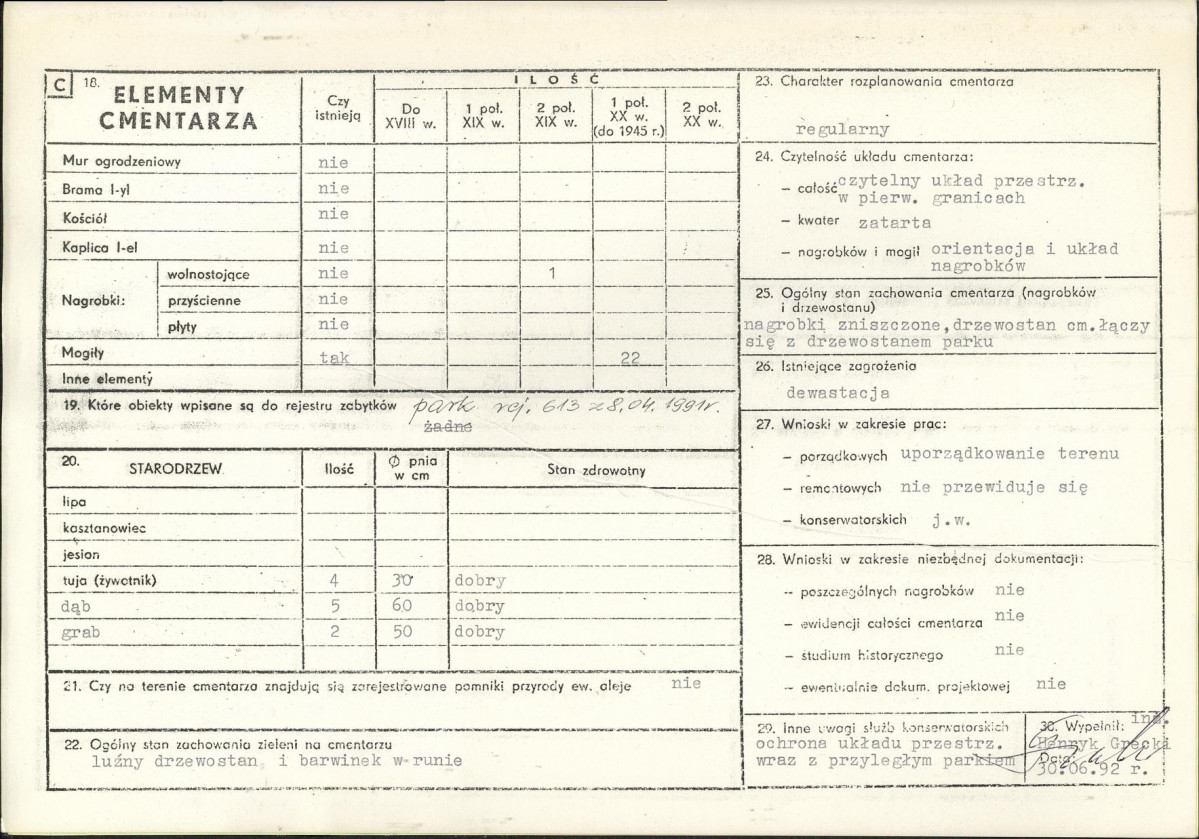 C 18. ELEMENTY CMENTARZA
Czy istnieją
ILOŚĆ
Do XVIII w.
1 poł. XIX w.
2 poł. XIX w.
1 poł. XX w. (do 1945 r.)
2 poł. XX w.
Mur ogrodzeniowy nie
Brama I-yl nie
Kościół nie
Kaplica I-el nie
Nagrobki:
wolnostojące nie 1
przyścienne nie
płyty nie
Mogiły tak 22
Inne elementy
19. Które obiekty wpisane są do rejestru zabytków park rej. 613 z 8.04.1991r.
żadne
20. STARODRZEW Ilość Ø pnia w cm Stan zdrowotny
lipa
kasztanowiec
jesion
tuja (żywotnik) 4 30 dobry
dąb 5 60 dobry
grab 2 50 dobry
21. Czy na terenie cmentarza znajdują się zarejestrowane pomniki przyrody ew. aleje nie
22. Ogólny stan zachowania zieleni na cmentarzu
luźny drzewostan i barwinek w runie
23. Charakter rozplanowania cmentarza
regularny
24. Czytelność układu cmentarza:
– całość czytelny układ przestrz.
w pierw. granicach
– kwater zatarta
– nagrobków i mogił orientacja i układ
nagrobków
25. Ogólny stan zachowania cmentarza (nagrobków
i drzewostanu)
nagrobki zniszczone, drzewostan cm. łączy
się z drzewostanem parku
26. Istniejące zagrożenia
dewastacja
27. Wnioski w zakresie prac:
– porządkowych uporządkowanie terenu
– remontowych nie przewiduje się
– konserwatorskich j.w.
28. Wnioski w zakresie niezbędnej dokumentacji:
– poszczególnych nagrobków nie
– ewidencji całości cmentarza nie
– studium historycznego nie
– ewentualnie dokum. projektowej nie
29. Inne uwagi służb konserwatorskich
ochrona układu przestrz.
wraz z przyległym parkiem
30. Wypełnił: inż.
Henryk Grecki
Data:
30.06.92 r.